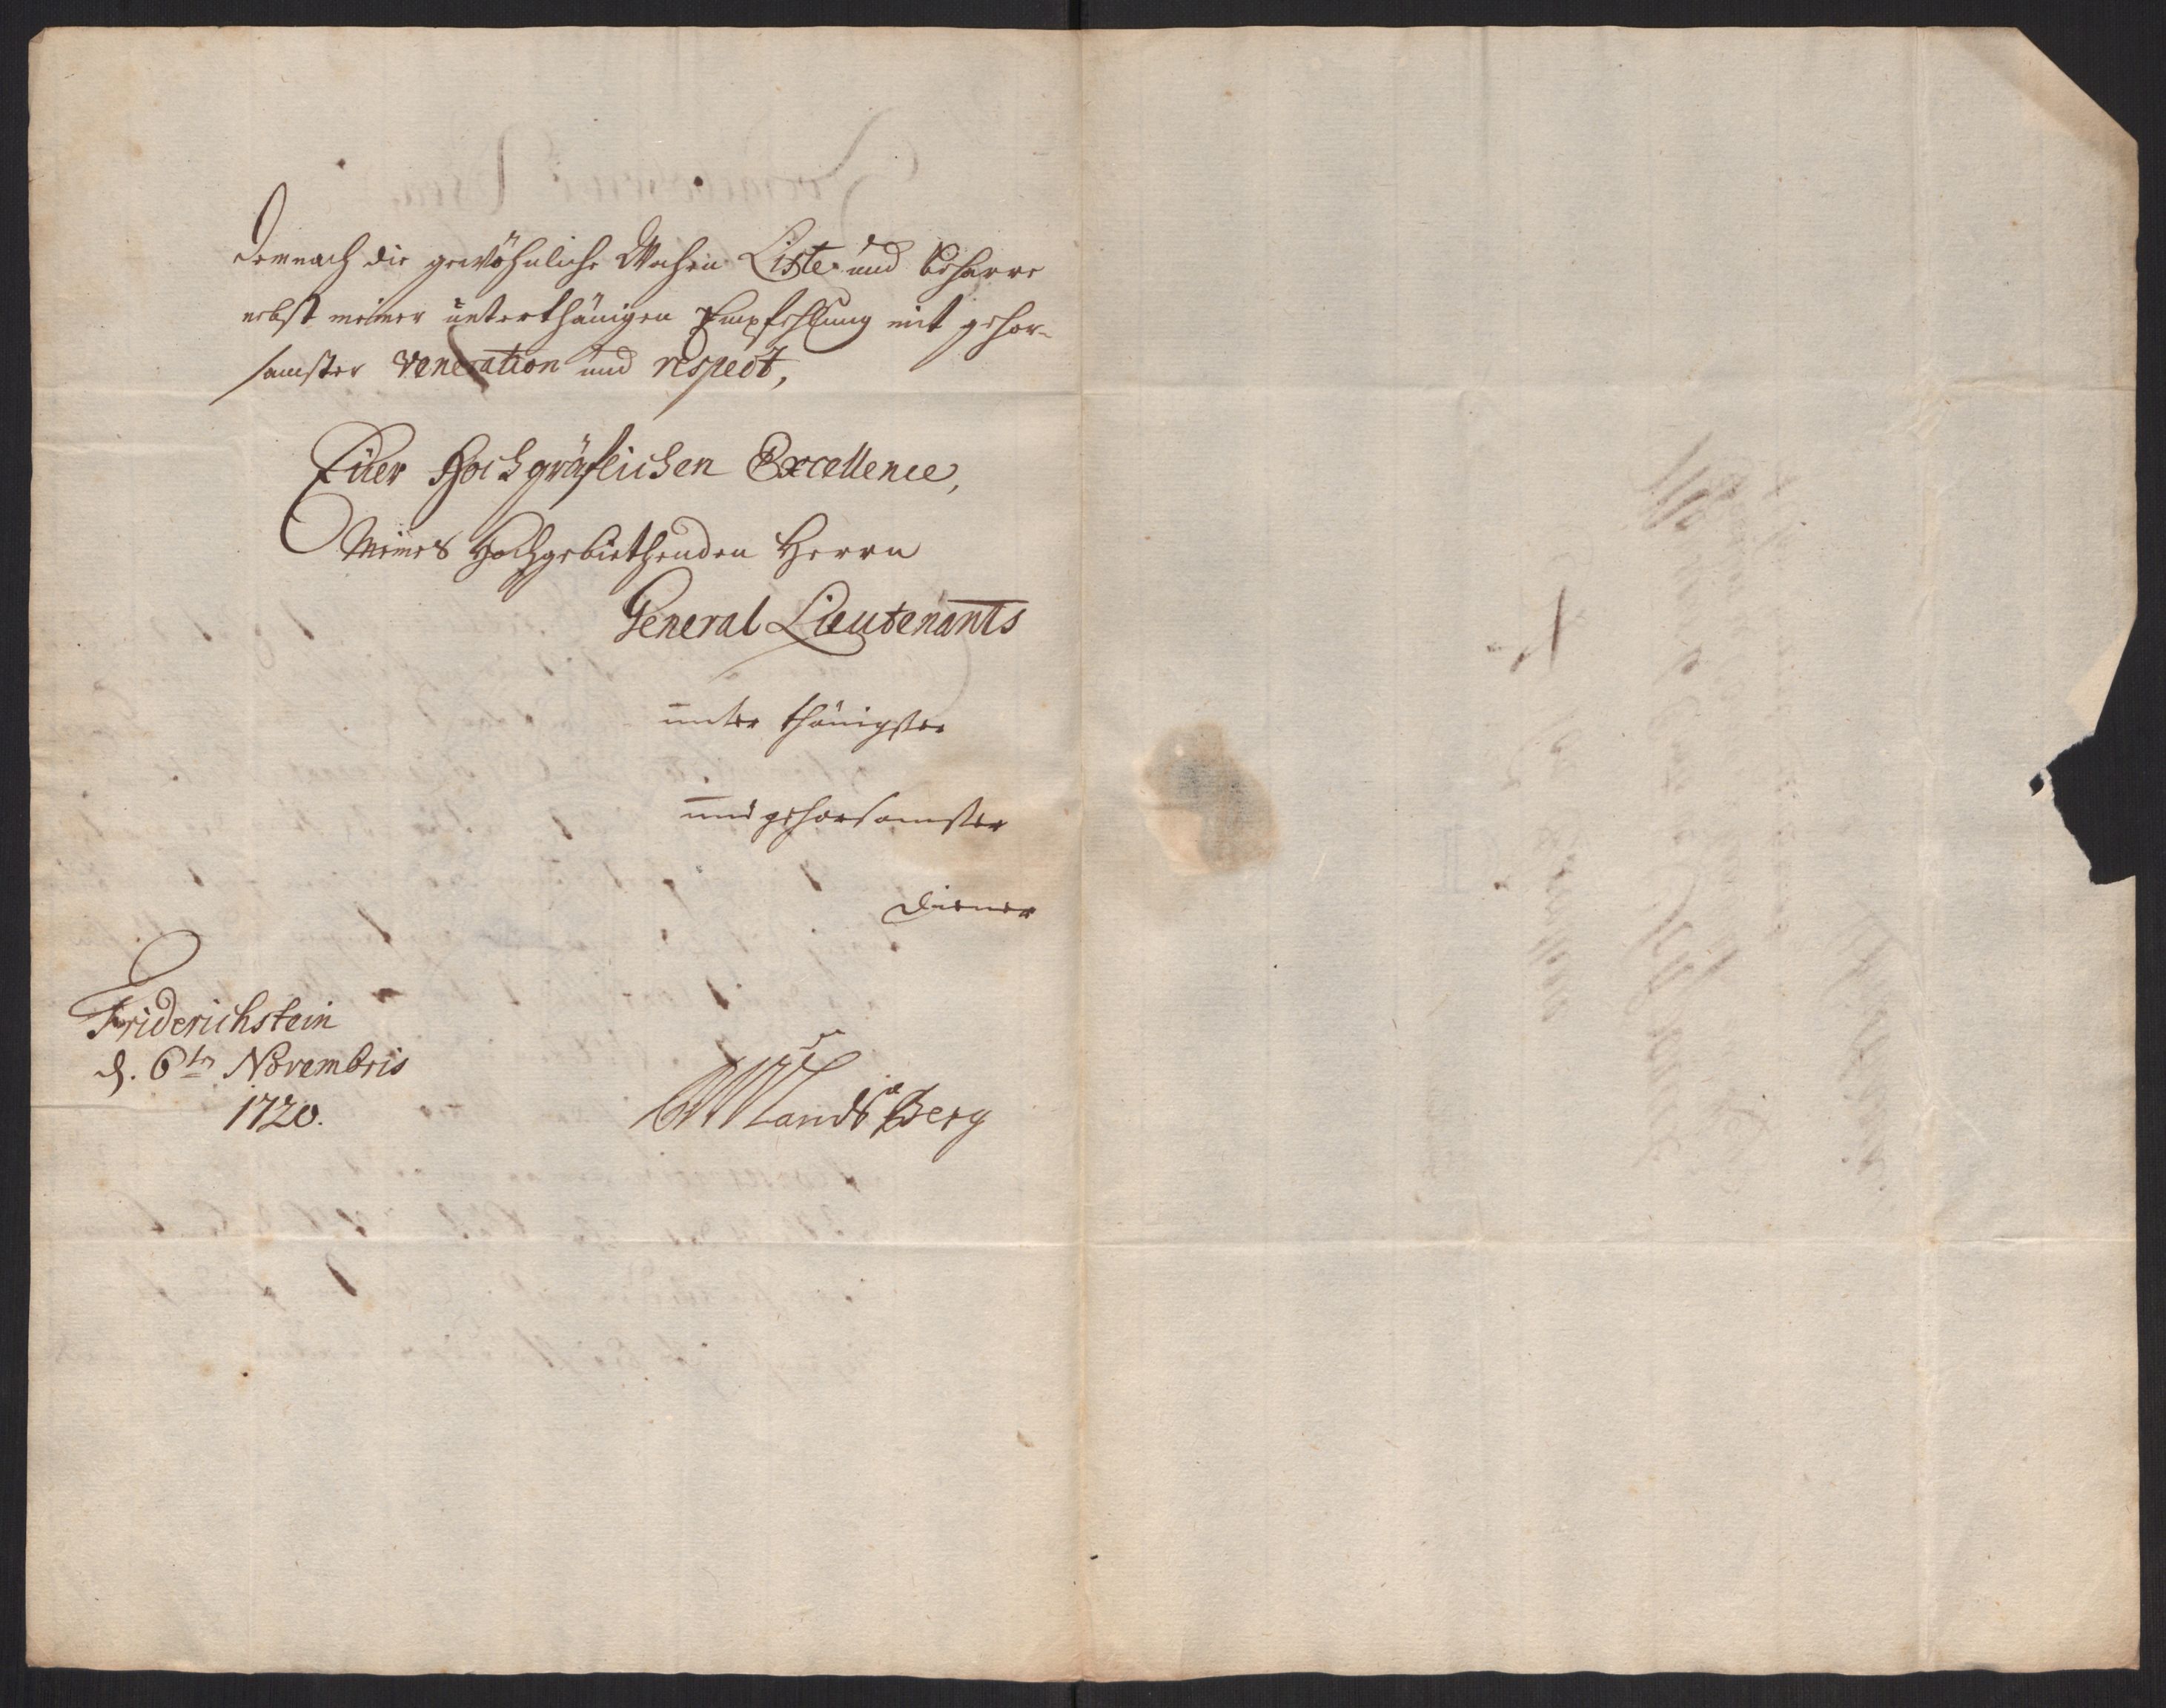 demnach die gewöhnliche Wochen Liste und beharre
nebst meiner unterthänigen Empfehlung mit gehor-
samster veneration und respect,
Euer Hochgräflichen Excellence,
Meines Hochgebiethenden Herrn
General Lieutenants
unter thänigster
und gehorsamster
Diener
Friderichstein
d. 6tn Novembris
1720.
Landsberg